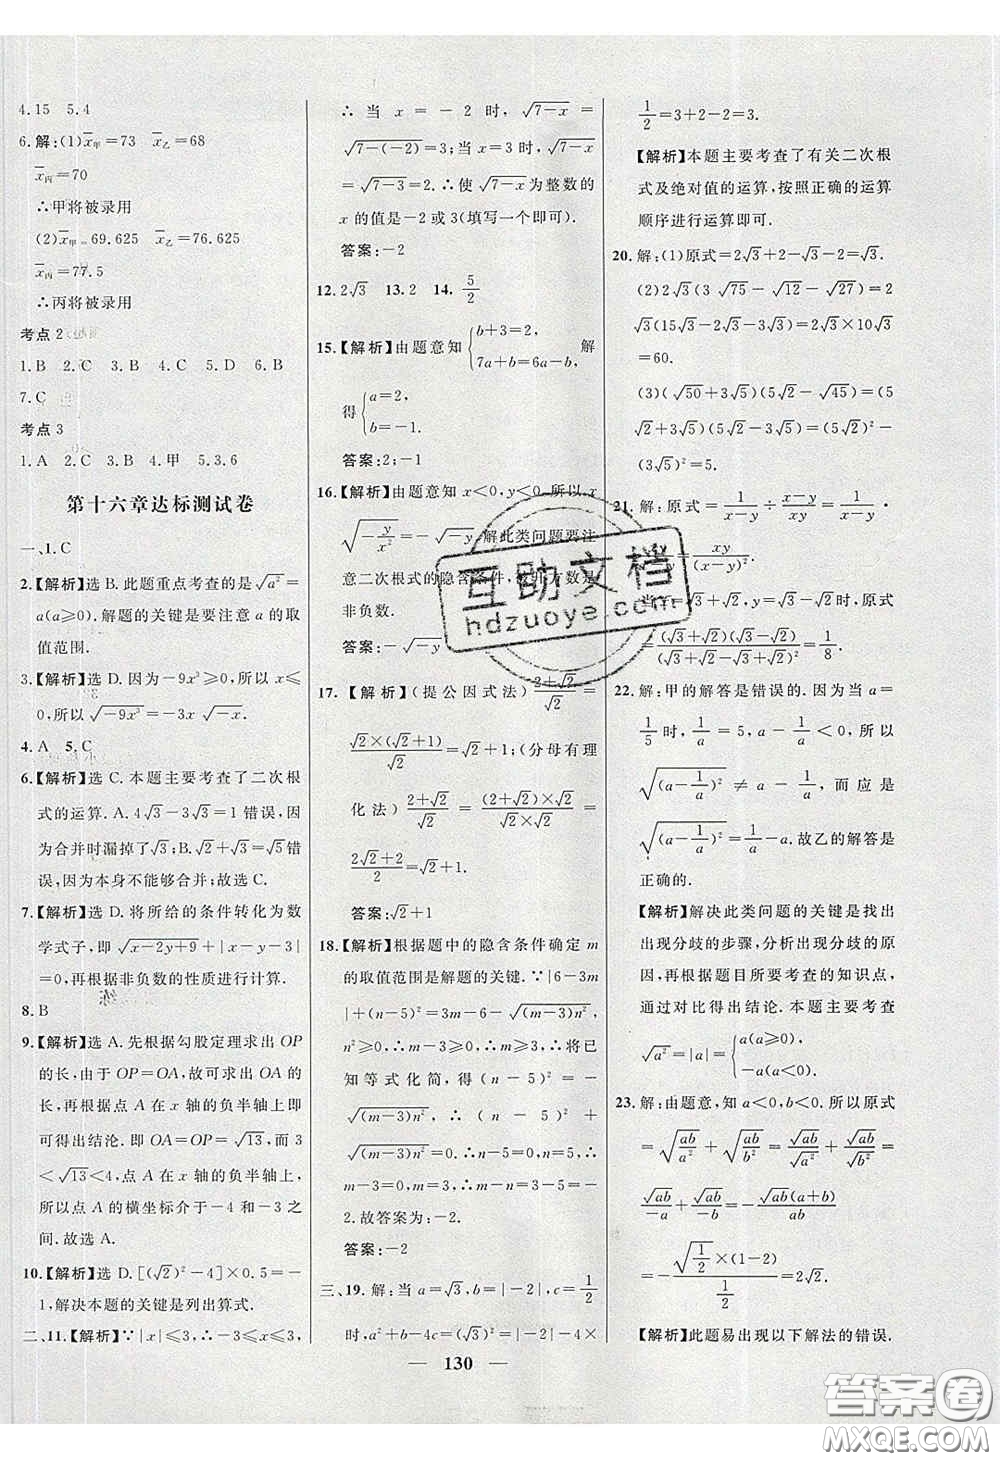 4.15　5.4
6.解:(1)x̄甲=73　x̄乙=68
x̄丙=70
∴甲将被录用
(2)x̄甲=69.625　x̄乙=76.625
x̄丙=77.5
∴丙将被录用
考点2
1.B　2.C　3.B　4.C　5.D　6.B
7.C
考点3
1.A　2.C　3.B　4.甲　5.3.6
第十六章达标测试卷
一、1.C
2.【解析】选B.此题重点考查的是√a²=
a(a≥0).解题的关键是要注意a的取
值范围.
3.【解析】选D.因为-9x³≥0,所以x≤
0,所以√-9x³=-3x√-x.
4.A　5.C
6.【解析】选C.本题主要考查了二次根
式的运算.A.4√3-3√3=1错误,因
为合并时漏掉了√3;B.√2+√3=√5错
误,因为本身不能够合并;故选C.
7.【解析】选D.将所给的条件转化为数
学式子,即√x-2y+9+|x-y-3|
=0,再根据非负数的性质进行计算.
8.B
9.【解析】选A.先根据勾股定理求出OP
的长,由于OP=OA,故可求出OA的
长,再根据点A在x轴的负半轴上即
可得出结论.即OA=OP=√13,而3
<√13<4,点A在x轴的负半轴上,
故点A的横坐标介于-4和-3之
间.故选A.
10.【解析】选D.[(√2)²-4]×0.5=-
1,解决本题的关键是列出算式.
二、11.【解析】∵|x|≤3,∴-3≤x≤3,
∴当x=-2时,√7-x=
√7-(-2)=3;当x=3时,√7-x
=√7-3=2.∴使√7-x为整数的
x的值是-2或3(填写一个即可).
答案:-2
12.2√3　13.2　14.5/2
15.【解析】由题意知{b+3=2,　解
7a+b=6a-b,
得{a=2,
b=-1.
答案:2;-1
16.【解析】由题意知x<0,y<0.所以x
√-y/x²=-√-y.解此类问题要注
意二次根式的隐含条件,被开方数是
非负数.
答案:-√-y
17.【解析】(提公因式法)(2+√2)/√2=
√2×(√2+1)/√2=√2+1;(分母有理
化法)(2+√2)/√2=(2+√2)×√2/√2×√2=
(2√2+2)/2=√2+1.
答案:√2+1
18.【解析】根据题中的隐含条件确定m
的取值范围是解题的关键.∵|6-3m
|+(n-5)²=3m-6-√(m-3)n²,
n²≥0,∴m-3≥0,∴m≥3,∴将已
知等式化简,得(n-5)²=-
√(m-3)n²,∴(n-5)²+
√(m-3)n²=0.∴m-3=0,n-5=
0.解得m=3,n=5.∴m-n=3-5=-
2.故答案为:-2.
答案:-2
三、19.解:当a=√3,b=|-2|,c=1/2
时,a²+b-4c=(√3)²+|-2|-4×
1/2=3+2-2=3.
【解析】本题主要考查了有关二次根
式及绝对值的运算,按照正确的运算
顺序进行运算即可.
20.解:(1)原式=2√3+2-2=2√3.
(2)2√3(√75-√12-√27)=
2√3(5√3-2√3+√3)=2√3×10√3
=60.
(3)(√50+3√5)(5√2-√45)=(5
√2+3√5)(5√2-3√5)=(5√2)²-
(3√5)²=50-45=5.
21.解:原式=1/(x-y)÷(x-y)/xy=1/(x-y)·
xy/(x-y)=xy/(x-y)².
√3+√2,y=√3-√2时,原式
=(√3+√2)(√3-√2)/(√3+√2-√3+√2)²=1/8.
22.解:甲的解答是错误的.因为当a=
1/5时,1/a=5,a-1/a<0,所以
√(a-1/a)²≠a-1/a,而应是
√(a-1/a)²=1/a-a.故乙的解答是
正确的.
【解析】解决此类问题的关键是找出
出现分歧的步骤,分析出现分歧的原
因,再根据题目所要考查的知识点,
通过对比得出结论.本题主要考查
√a²=|a|={a(a≥0)
-a(a≤0).
23.解:由题意,知a<0,b<0.所以原式
=√ab/a²+√ab/b²=√ab/√a²+√ab/√b²=
√ab/-a+√ab/-b=-√ab(a+b)/ab
=-√1/2×(1-2)/1/2=2√2.
【解析】此题易出现以下解法的错误.
— 130 —
互助文档
hdzuoye.com
答案卷
MXQE.COM